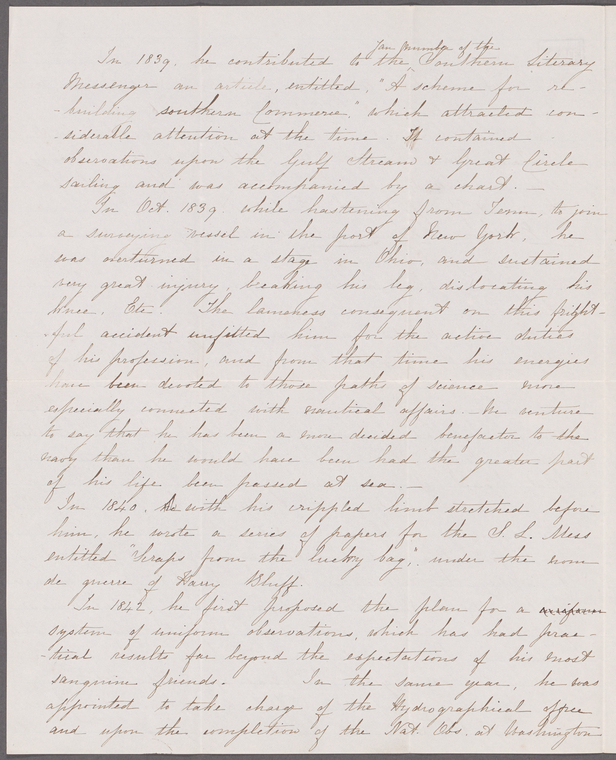 Jan number of the
In 1839. he contributed to the Southern Literary
Messenger an article, entitled, "A scheme for re-
-building southern Commerce," which attracted con-
-siderable attention at the time. It contained
observations upon the Gulf Stream & Great Circle
sailing and was accompanied by a chart. —
In Oct. 1839. while hastening from Tenn, to join
a surveying vessel in the port of New York, he
was overturned in a stage in Ohio, and sustained
very great injury, breaking his leg, dislocating his
knee, Etc. The lameness consequent on this fright-
-ful accident unfitted him for the active duties
of his profession, and from that time his energies
have been devoted to those paths of science more
especially connected with nautical affairs. We venture
to say that he has been a more decided benefactor to the
navy than he would have been had the greater part
of his life been passed at sea. —
In 1840. with his crippled limb stretched before
him, he wrote a series of papers for the S. L. Mess
entitled "Scraps from the lucky bag", under the nom
de guerre of Harry Bluff.
In 1842, he first proposed the plan for a
system of uniform observations, which has had prac-
-tical results far beyond the expectations of his most
sanguine friends. In the same year, he was
appointed to take charge of the Hydrographical office
and upon the completion of the Nat. Obs. at Washington